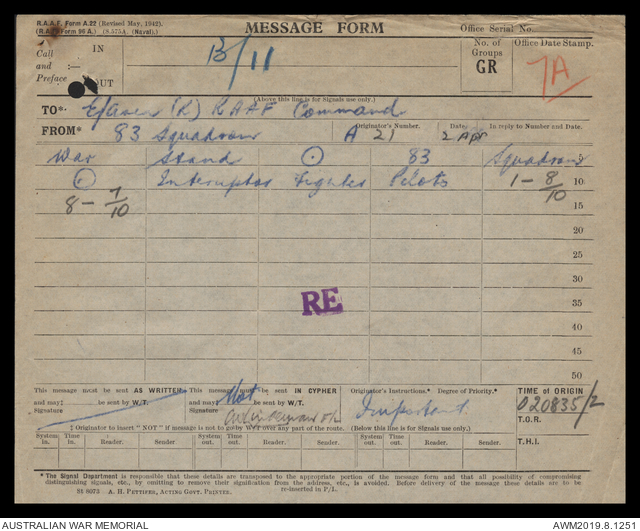 R.A.A.F. Form A.22 (Revised May, 1942).
(R.A.A.F. Form 96 A.) (S.575A. (Naval).)
MESSAGE FORM
Office Serial No.
Call and Preface :—
IN
OUT
B/11
No. of Groups
GR
Office Date Stamp.
7A
(Above this line is for Signals use only.)
TO*: (R) RAAF Command
Originator's Number. Date. In reply to Number and Date.
FROM* 83 Squadron A 21 2 Apr
War Stand ⊙ 83 Squadron 5
⊙ Interceptor Fighter Pilots 1 – 8/10 10
8 – 7/10 15
20
25
30
RE
35
40
45
50
This message must be sent AS WRITTEN and may‡ be sent by W/T.
Signature
This message must be sent IN CYPHER and may Not be sent by W/T.
Signature F/L
Originator's Instructions.* Degree of Priority.*
Important
TIME OF ORIGIN
020835/2
T.O.R.
‡ Originator to insert "NOT" if message is not to go by W/T over any part of the route. (Below this line is for Signals use only.)
System in. Time in. Reader. Sender. System out. Time out. Reader. Sender. System out. Time out. Reader. Sender. T.H.I.
* The Signal Department is responsible that these details are transposed to the appropriate portion of the message form and that all possibility of compromising
distinguishing signals, etc., by omitting to remove their signification from the address, etc., is avoided. Before delivery of the message these details are to be
re-inserted in P/L.
A. H. Pettifer, Acting Govt. Printer.
AUSTRALIAN WAR MEMORIAL
AWM2019.8.1251